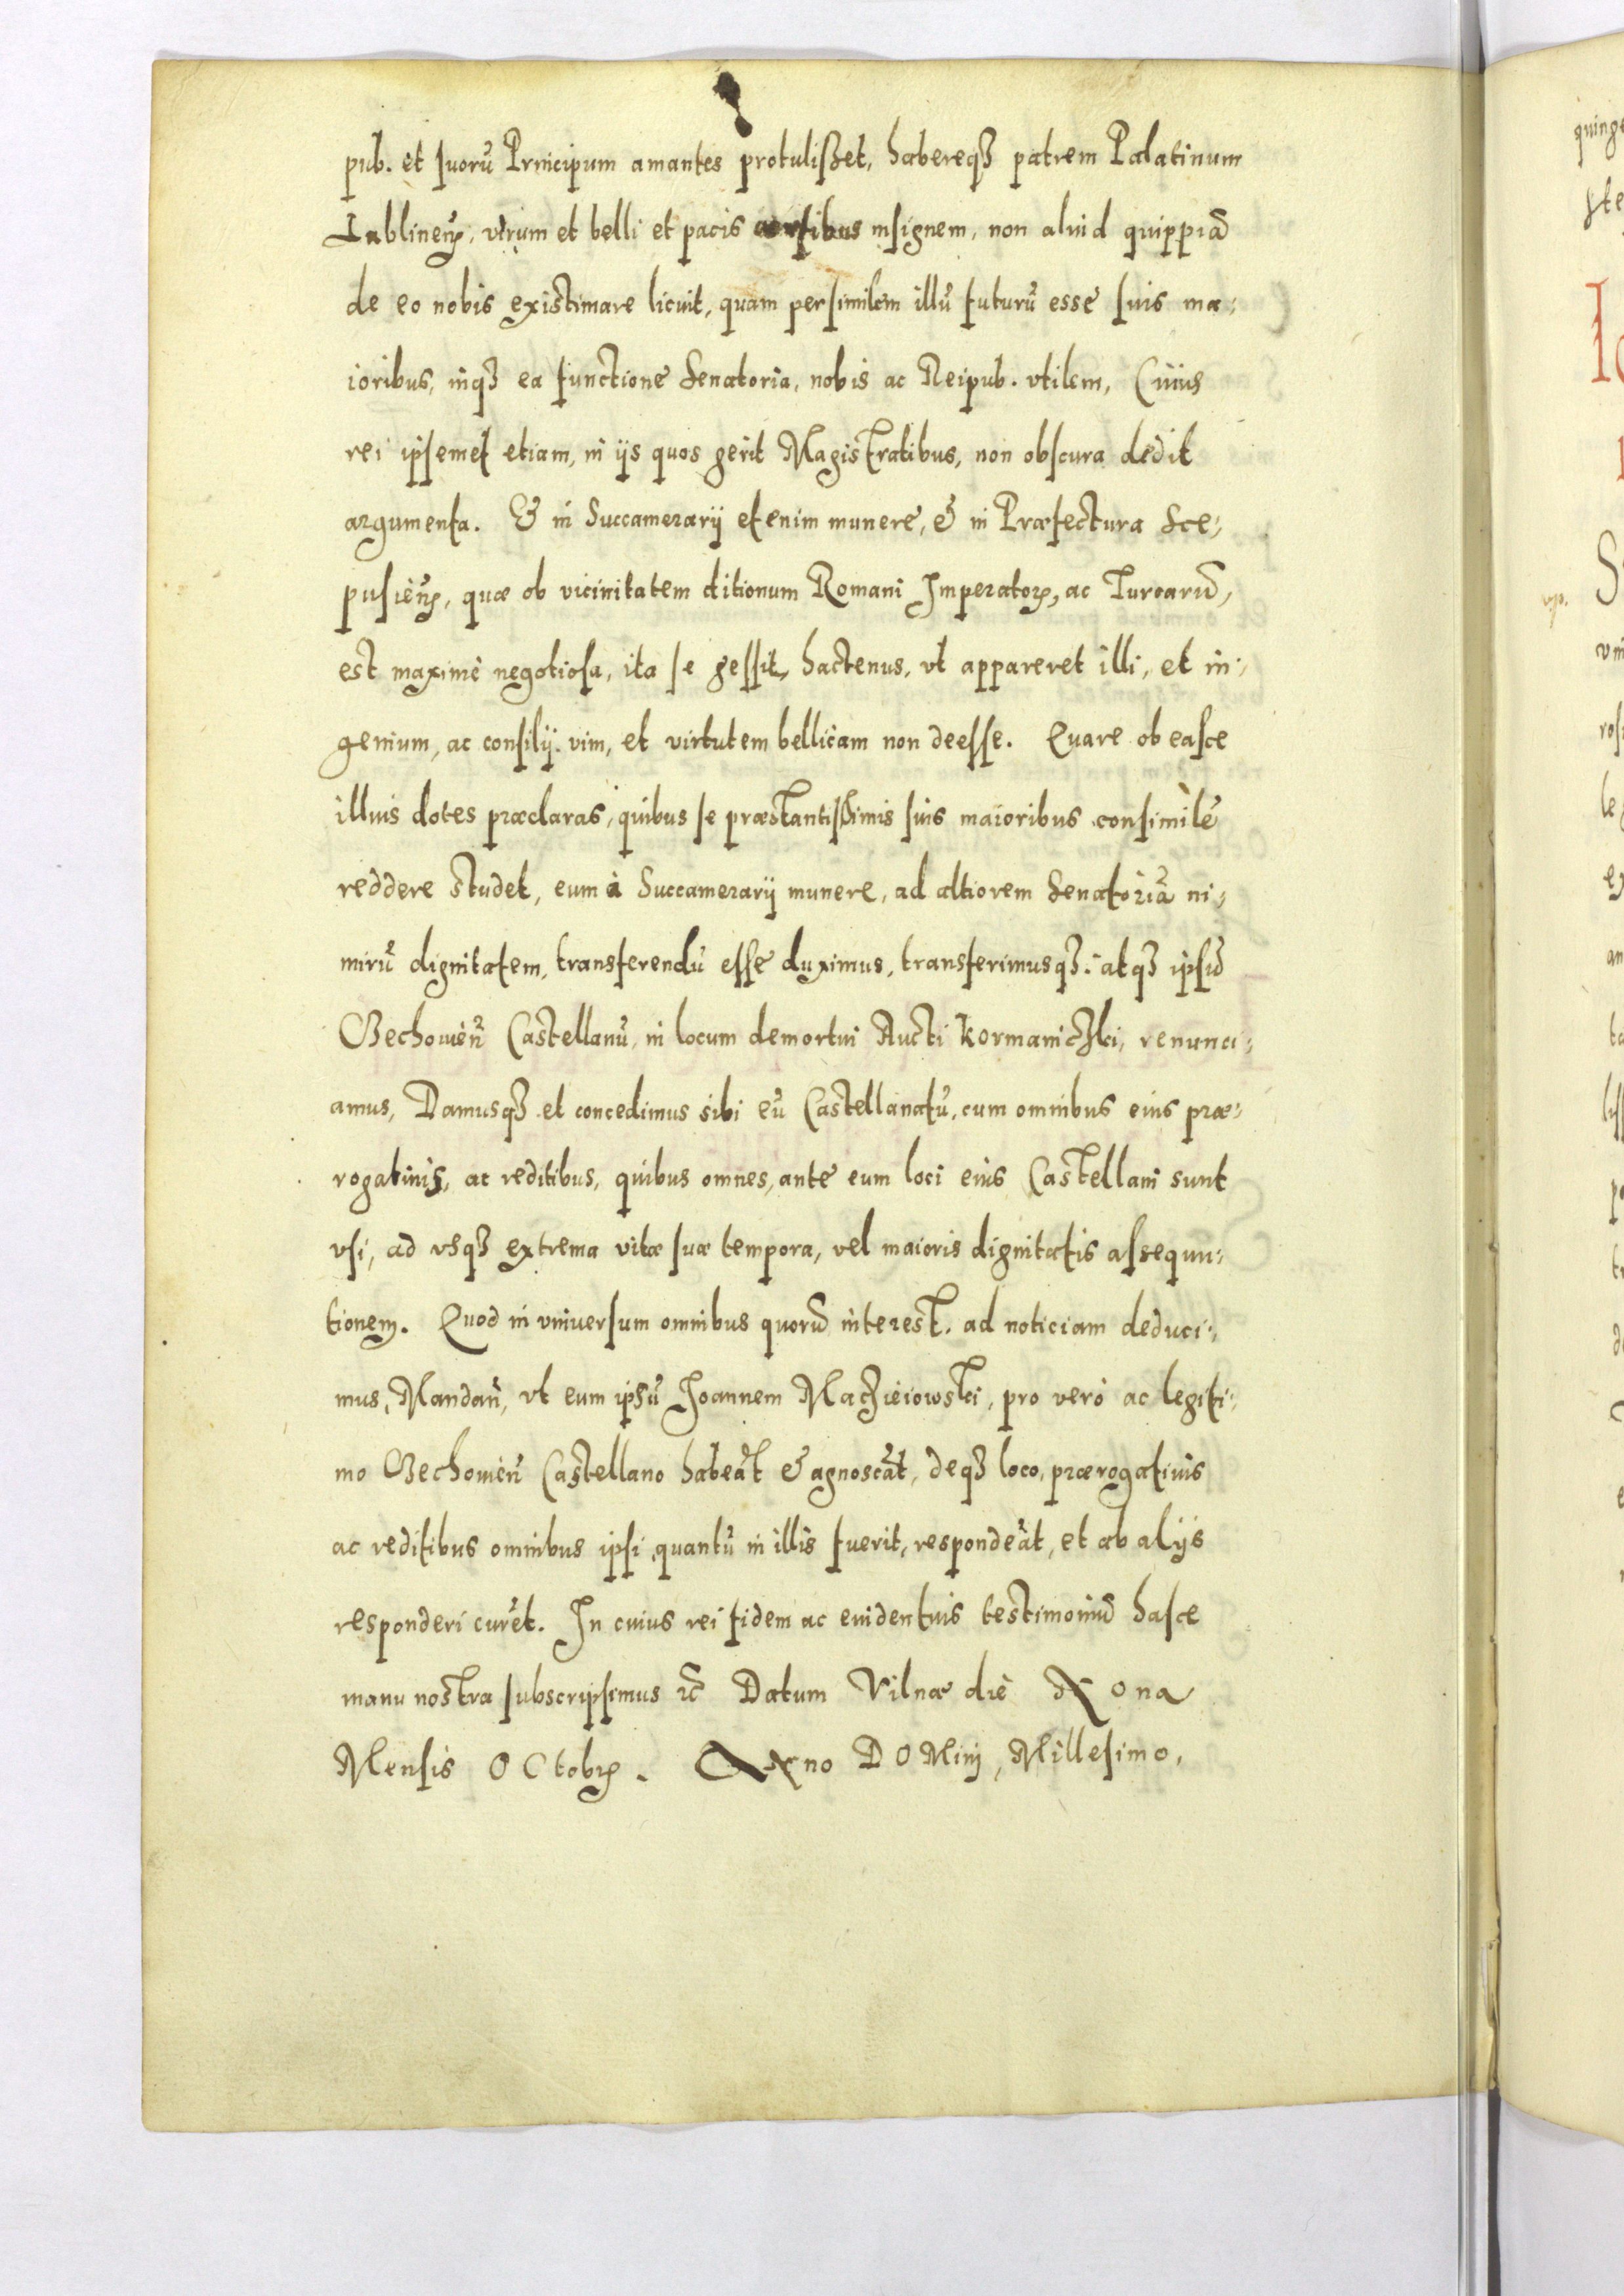 pub. et suorũ Principum amantes protulißet, habereqꝫ patrem Palatinum
Lublineñ. virum et belli et pacis artibus insignem, non aliud quippiã
de eo nobis existimare licuit, quam persimilem illũ futurũ esse suis ma-
ioribus, inqꝫ ea functione Senatoria, nobis ac Reipub. vtilem, Cuius
rei ipsemet etiam, in ijs quos gerit Magistratibus, non obscura dedit
argumenta. Et in Succamerarij etenim munere, & in Præfectura Sce-
pusieñ, quæ ob vicinitatem ditionum Romani Imperatoꝝ, ac Turcarũ,
est maximè negotiosa, ita se gessit hactenus, vt appareret illi, et in-
genium, ac consilij vim, et virtutem bellicam non deesse. Quare ob easce
illius dotes præclaras, quibus se præstantißimis suis maioribus consimilẽ
reddere studet, eum à Succamerarij munere, ad altiorem Senatoriã ni-
mirũ dignitatem, transferendũ esse duximus, transferimusqꝫ: atqꝫ ipsũ
Bechouieñ Castellanũ, in locum demortui Aucti Kormaniczki, renunci-
amus, Damusqꝫ et concedimus sibi eũ Castellanatũ, cum omnibus eius præ-
rogatiuis, ac reditibus, quibus omnes, ante eum loci eius Castellani sunt
vsi, ad vsqꝫ extrema vitæ suæ tempora, vel maioris dignitatis assequu-
tionem. Quod in vniuersum omnibus quorũ interest, ad noticiam deduci-
mus, Mandañ, vt eum ipsũ Joannem Maczieiowski, pro verò ac legiti-
mo Bechouieñ Castellano habeãt & agnoscãt, deqꝫ loco, prærogatiuis
ac reditibus omnibus ipsi, quantũ in illis fuerit, respondeãt, et ab alijs
responderi curẽt. In cuius rei fidem ac euidentius testimoniũ hasce
manu nostra subscripsimus &c̃ Datum Vilnæ die Nona
Mensis OCtobꝝ. Anno DOMinj, Millesimo,